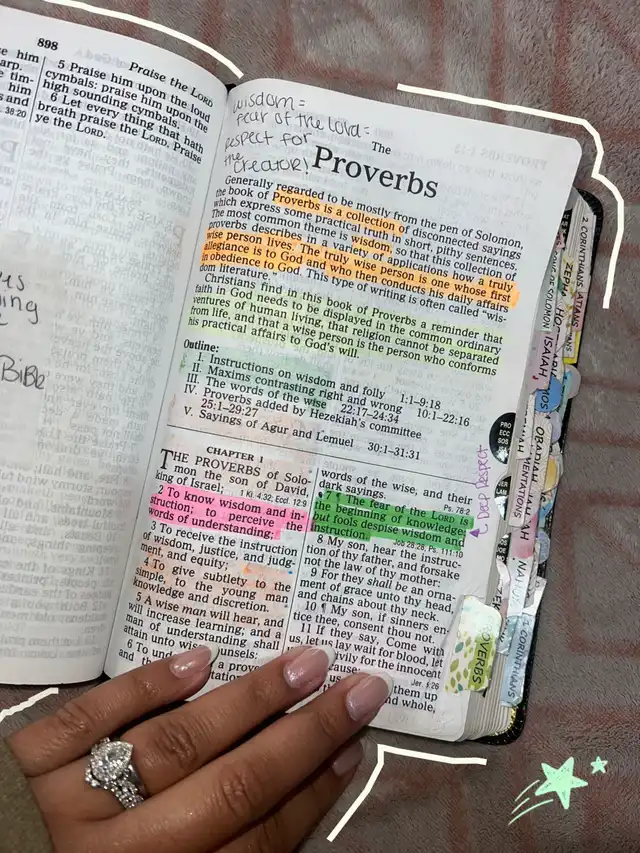 898
Praise the LORD
5 Praise him upon the loud
cymbals: praise him upon the
high sounding cymbals.
6 Let every thing that hath
breath praise the LORD. Praise
ye the LORD.
se him
arp.
tim-
him
s and
38:20
BiBle
wisdom =
fear of the Lord =
respect for
the creator!
The
Proverbs
Generally regarded to be mostly from the pen of Solomon,
the book of Proverbs is a collection of disconnected sayings
which express some practical truth in short, pithy sentences.
The most common theme is wisdom, so that this collection of
proverbs describes in a variety of applications how a truly
wise person lives. The truly wise person is one whose first
allegiance is to God and who then conducts his daily affairs
in obedience to God. This type of writing is often called "wis-
dom literature."
Christians find in this book of Proverbs a reminder that
faith in God needs to be displayed in the common ordinary
ventures of human living, that religion cannot be separated
from life, and that a wise person is the person who conforms
his practical affairs to God's will.
Outline:
I. Instructions on wisdom and folly 1:1–9:18
II. Maxims contrasting right and wrong 10:1–22:16
III. The words of the wise 22:17–24:34
IV. Proverbs added by Hezekiah's committee
25:1–29:27
V. Sayings of Agur and Lemuel 30:1–31:31
CHAPTER 1
THE PROVERBS of Solo-
mon the son of David,
king of Israel;
1 Ki. 4:32; Eccl. 12:9
2 To know wisdom and in-
struction; to perceive the
words of understanding;
3 To receive the instruction
of wisdom, justice, and judg-
ment, and equity;
4 To give subtlety to the
simple, to the young man
knowledge and discretion.
5 A wise man will hear, and
will increase learning; and a
man of understanding shall
attain unto wise counsels:
6 To understand a prove
and the
words of the wise, and their
dark sayings.
Ps. 78:2
7 ¶ The fear of the LORD is
the beginning of knowledge:
but fools despise wisdom and
instruction.
Job 28:28; Ps. 111:10
8 My son, hear the instruc-
tion of thy father, and forsake
not the law of thy mother:
9 For they shall be an orna-
ment of grace unto thy head,
and chains about thy neck.
10 ¶ My son, if sinners en-
tice thee, consent thou not.
11 If they say, Come with
us, let us lay wait for blood, let
privily for the innocent
cause:
Jer. 1:26
them up
and whole,
Deep Respect
PRO
ECC
SOS
PROVERBS
2 CORINTHIANS
SONG OF SOLOMON
ISAIAH
OBADIAH
LAMENTATIONS
CORINTHIANS